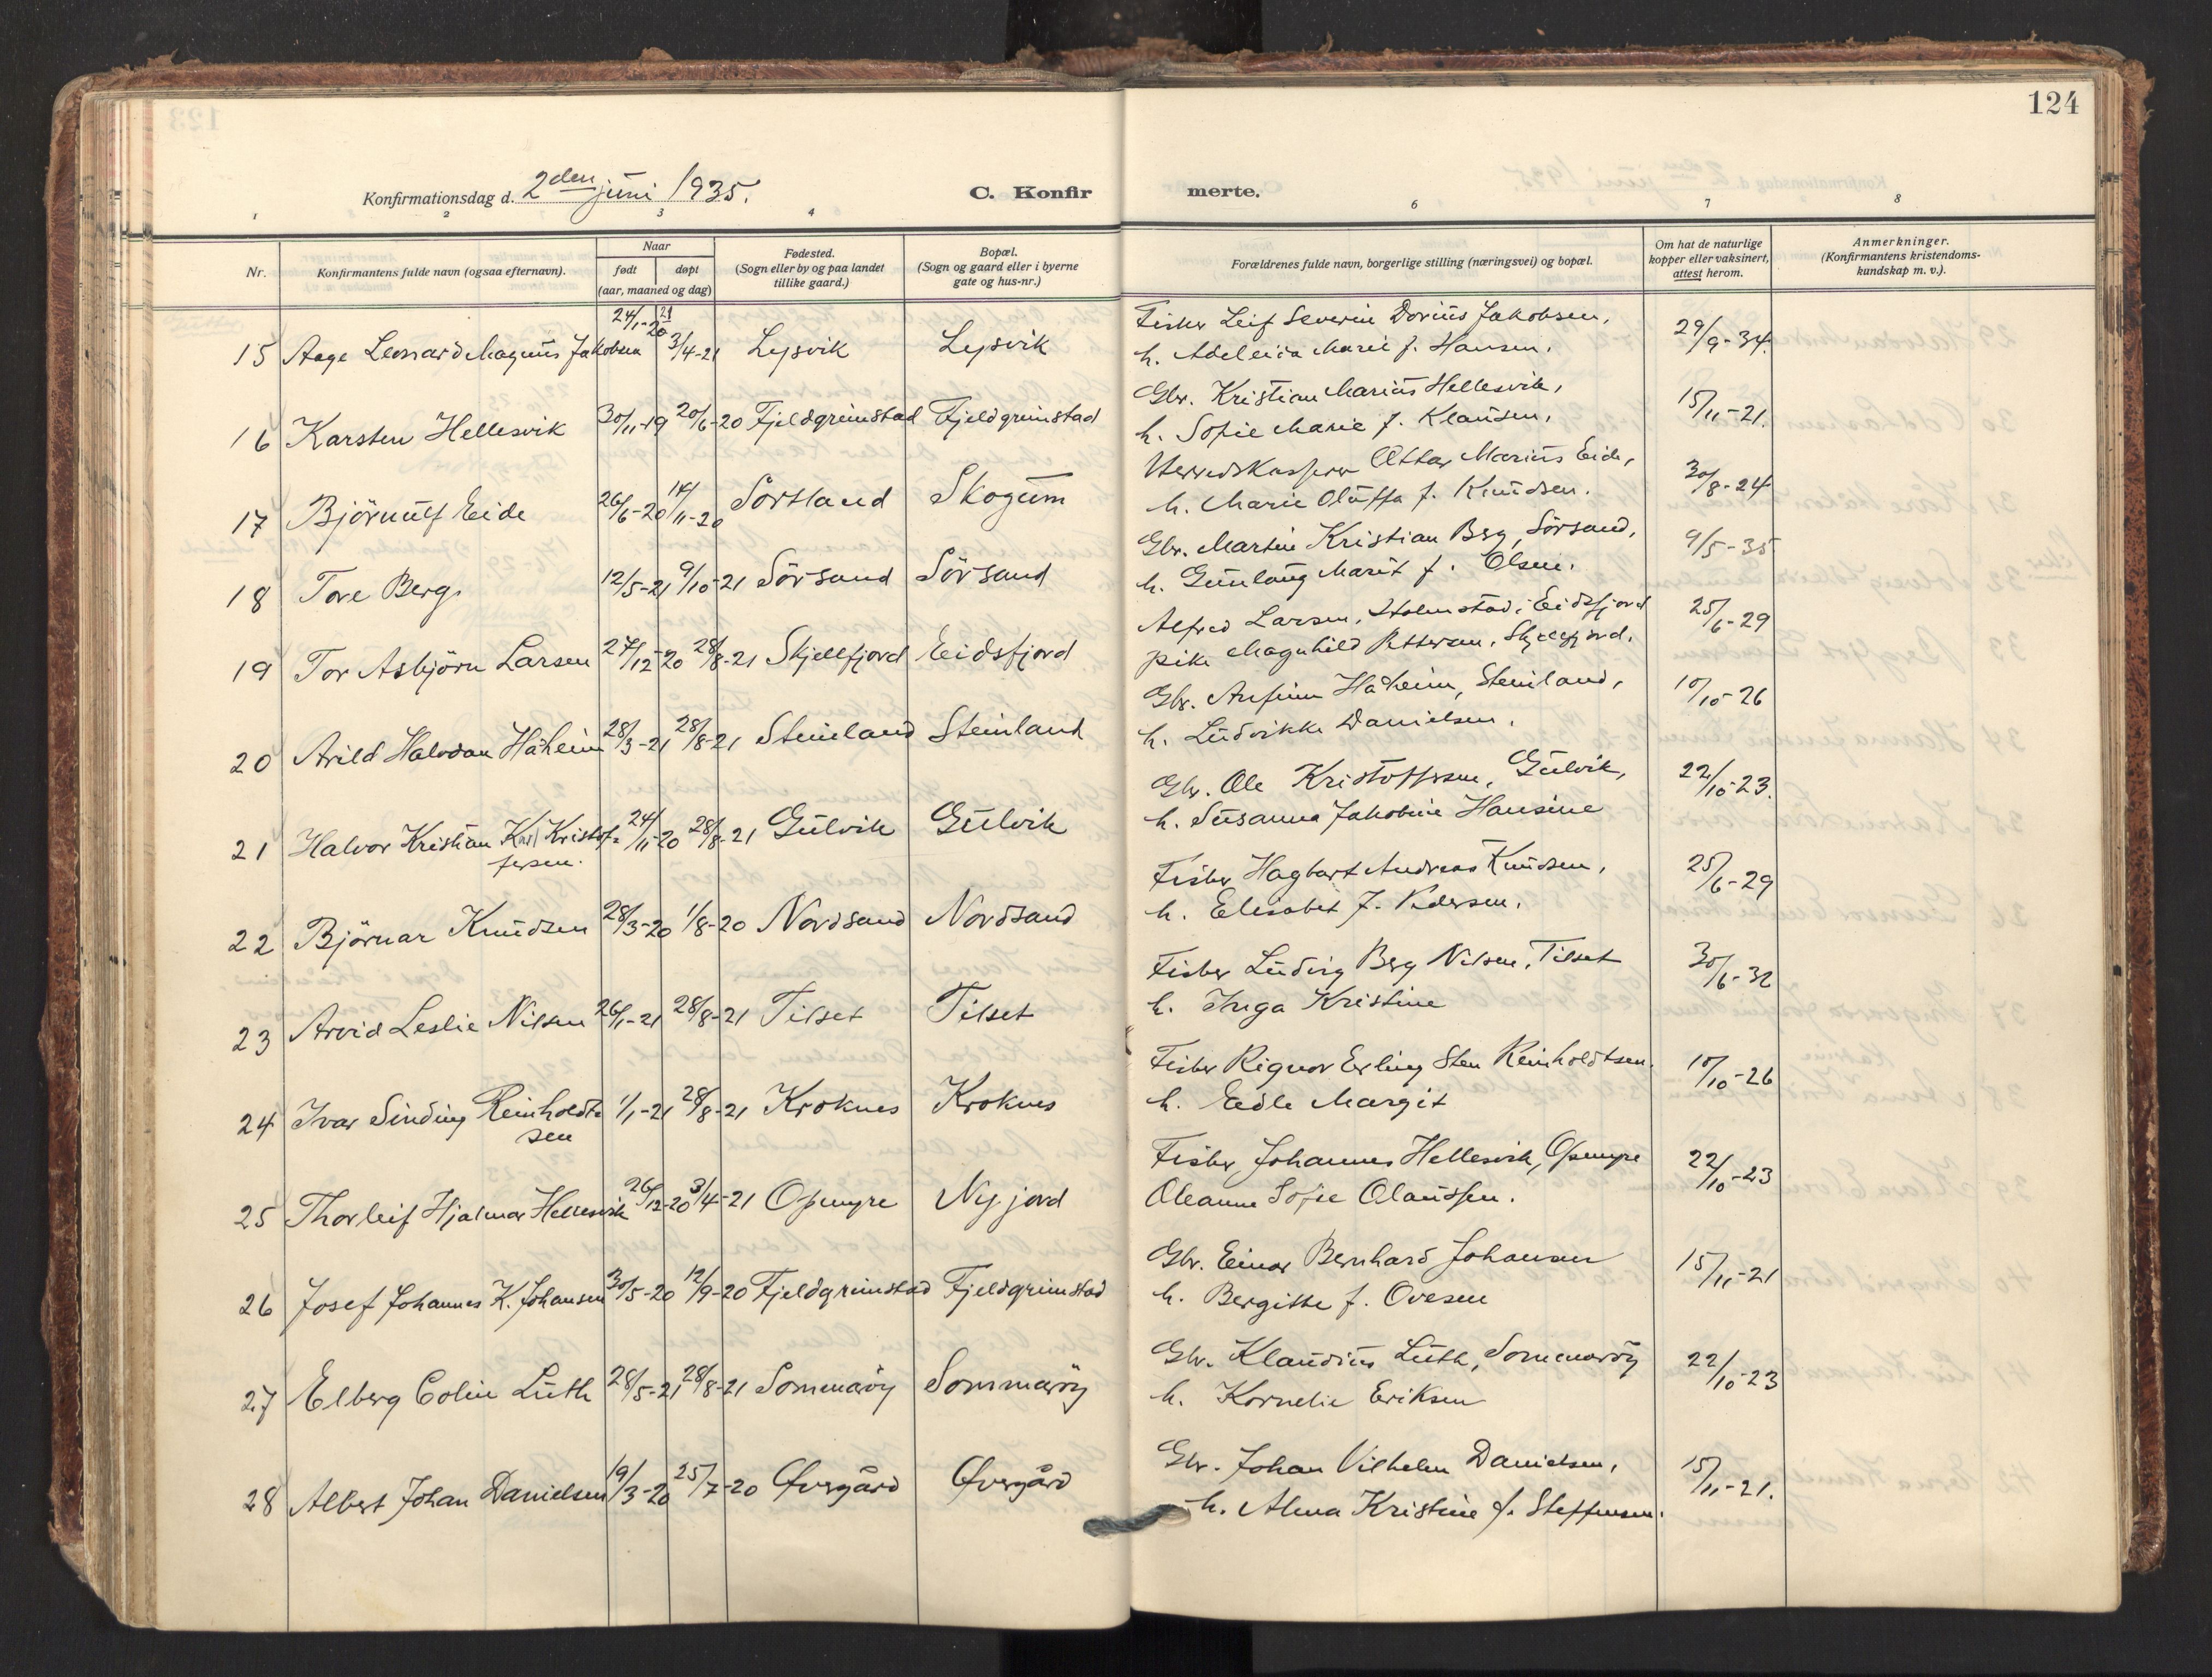 124
Konfirmationsdag d. 2den juni 1935.
C. Konfirmerte.
1 2 3 4 6 7 8
Nr.
Konfirmantens fulde navn (ogsaa efternavn).
Naar
født
døpt
(aar, maaned og dag)
Fødested.
(Sogn eller by og paa landet
tillike gaard.)
Bopæl.
(Sogn og gaard eller i byerne
gate og hus-nr.)
Forældrenes fulde navn, borgerlige stilling (næringsvei) og bopæl.
Om hat de naturlige
kopper eller vaksinert,
attest herom.
Anmerkninger.
(Konfirmantens kristendoms-
kundskap m. v.).
15 Aage Leonard Magnus Jakobsen 24/1-20 3/4-21 Lysvik Lysvik
Fisker Leif Severin Dorius Jakobsen, 29/9-34.
h. Adeleida Marie f. Hansen.
16 Karsten Hellesvik 30/11-19 20/6-20 Fjeldgrimstad Fjeldgrimstad
Gbr. Kristian Marius Hellesvik, 15/11-21.
h. Sofie Marie f. Klausen,
17 Björnulf Eide 26/6-20 14/11-20 Sortland Skogum
Herredskasserer Ottar Marius Eide, 30/8-24
h. Marie Oluffa f. Knudsen.
18 Tore Berg. 12/5-21 9/10-21 Sörsand Sörsand
Gbr. Martin Kristian Berg, Sörsand, 9/5-35
h. Gunlaug Marit f. Olsen.
19 Tor Asbjörn Larsen 27/12-20 28/8-21 Skjellfjord Eidsfjord
Alfred Larsen, Holmstad i Eidsfjord 25/6-29
pike Magnhild Pettersen, Skjellfjord.
20 Arild Halvdan Håheim 28/3-21 28/8-21 Steinland Steinland
Gbr. Anfinn Håheim, Steinland, 10/10-26
h. Ludvikke Danielsen.
21 Halvor Kristian Karl Kristof-
fersen. 24/11-20 28/8-21 Gulvik Gulvik
Gbr. Ole Kristoffersen, Gulvik, 22/10-23.
h. Susanna Jakobine Hansine
22 Björnar Knudsen 28/3-20 1/8-20 Nordsand Nordsand
Fisker Hagbart Andreas Knudsen, 25/6-29
h. Elisabet f. Pedersen.
23 Arvid Leslie Nilsen 26/1-21 28/8-21 Tilset Tilset
Fisker Ludvig Berg Nilsen, Tilset 30/6-32
h. Inga Kristine
24 Ivar Sinding Reinholdt-
sen 1/1-21 28/8-21 Kroknes Kroknes
Fisker Rignor Erling Sten Reinholdtsen. 10/10-26
h. Edle Margit
25 Thorleif Hjalmar Hellesvik 26/12-20 3/4-21 Opmyre Nyjord
Fisker Johannes Hellesvik, Opmyre 22/10-23
Oleanne Sofie Olaussen.
26 Josef Johannes K. Johansen 30/5-20 12/9-20 Fjeldgrimstad Fjeldgrimstad
Gbr. Einar Bernhard Johansen 15/11-21
h. Bergitte f. Ovesen
27 Elberg Colin Luth 28/5-21 28/8-21 Sommaröy Sommaröy
Gbr. Klaudius Luth, Sommaröy 22/10-23
h. Kornelie Eriksen
28 Albert Johan Danielsen 19/3-20 25/7-20 Øvergård Øvergård
Gbr. Johan Vilhelm Danielsen, 15/11-21.
h. Alma Kristine f. Steffensen.